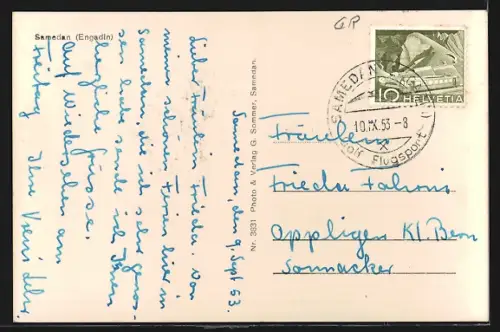 Samedan (Engadin)
GR
HELVETIA
10
SAMEDAN (ENGADIN)
10.IX.53-8
Golf Flugsport
Samedan, den 9. Sept 53.
Liebe Fräulein Frieda. Von
meinen schönen Ferien hier in
Samedan, die ich sehr genos-
sen habe sende ich Ihnen
herzliche Grüsse.
Auf Wiedersehen am
Freitag Ihre Vreni
Nr. 3831 Photo & Verlag G. Sommer, Samedan.
Fräulein
Frieda
Oppligen Kt. Bern
Sonnacker